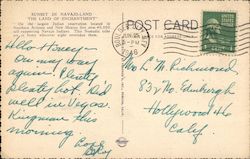 SUNSET IN NAVAJO-LAND
"THE LAND OF ENCHANTMENT"
On the largest Indian reservation located in
Northern Arizona and New Mexico live over 40,000
self-supporting Navajo Indians. The Nomadic tribe
POST CARD
JUN 25
1946
Hello Honey—
On our way
again. Plenty
plenty hot. Did
well in Vegas.
Kingman this
morning.
Mrs L. M. Richmond
832 No. Edinburgh
Hollywood 46
Calif.